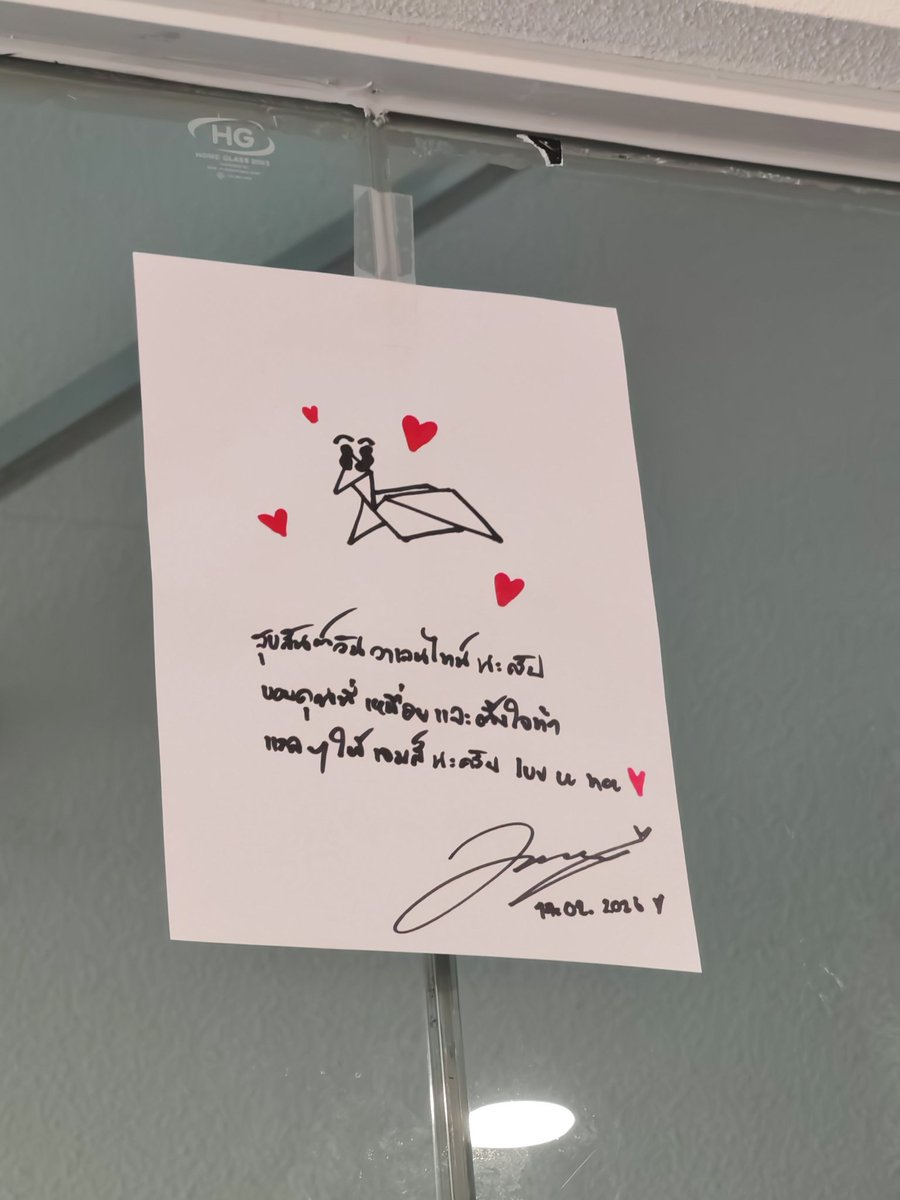 HG
สุขสันต์วันวาเลนไทน์ นะครับ
ขอบคุณที่ เหนื่อย และ ตั้งใจทำ
แหละๆ ให้ เจมส์ นะครับ luv u na
14.02.2026